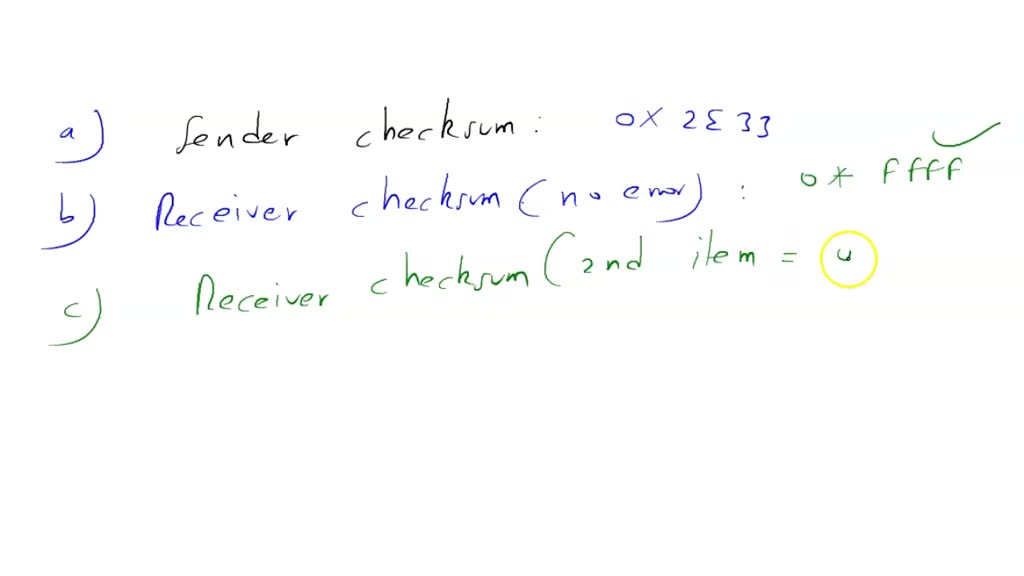 a) Sender checksum: 0x 2E33
b) Receiver checksum (no error): 0x ffff
c) Receiver checksum (2nd item =